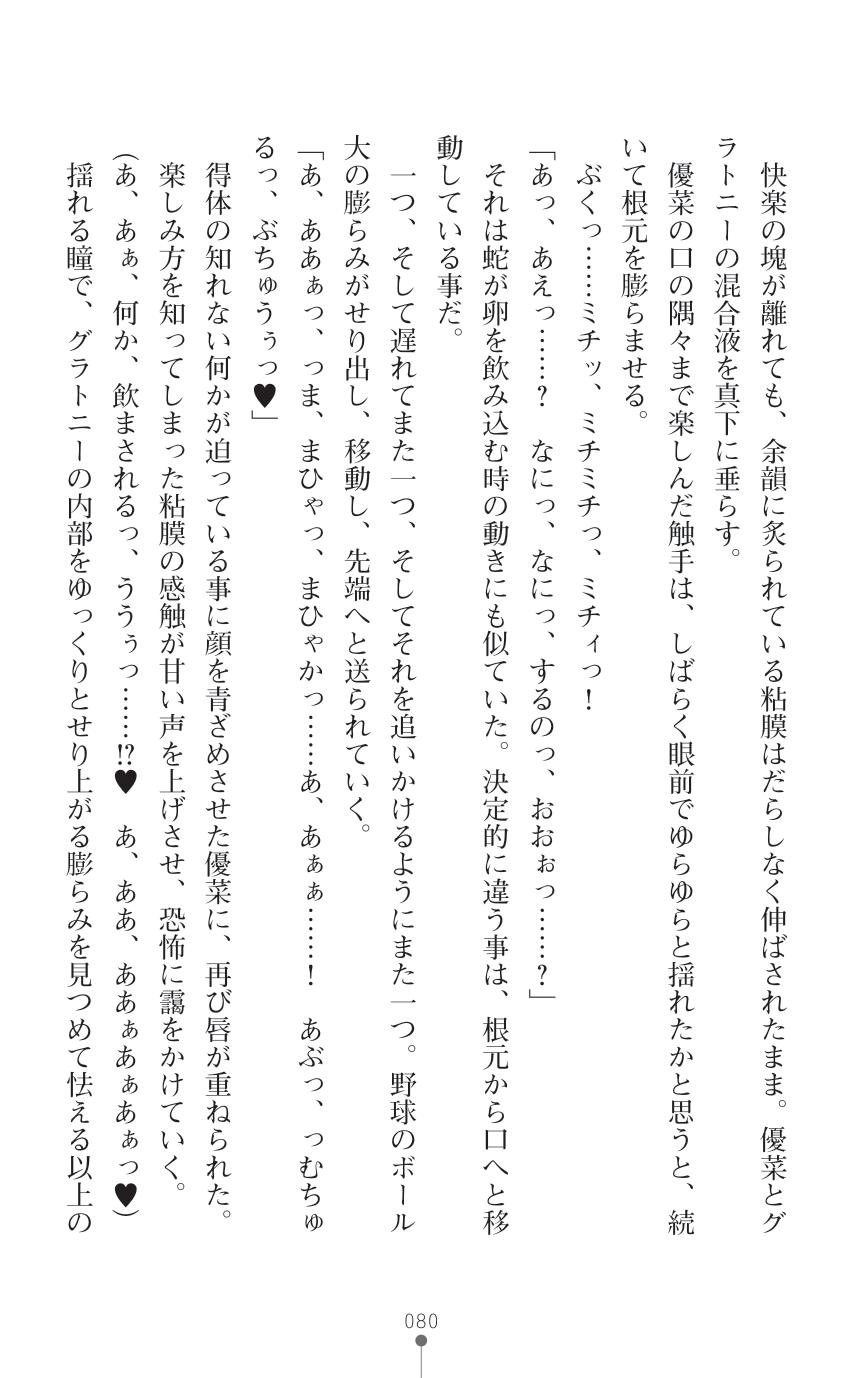 快楽の塊が離れても、余韻に炙られている粘膜はだらしなく伸ばされたまま。優菜とグ
ラトニーの混合液を真下に垂らす。
優菜の口の隅々まで楽しんだ触手は、しばらく眼前でゆらゆらと揺れたかと思うと、続
いて根元を膨らませる。
ぶくっ……ミチッ、ミチミチっ、ミチィっ！
「あっ、あえっ……？　なにっ、なにっ、するのっ、おおぉっ……？」
それは蛇が卵を飲み込む時の動きにも似ていた。決定的に違う事は、根元から口へと移
動している事だ。
一つ、そして遅れてまた一つ、そしてそれを追いかけるようにまた一つ。野球のボール
大の膨らみがせり出し、移動し、先端へと送られていく。
「あ、ああぁっ、っま、まひゃっ、まひゃかっ……あ、あぁぁ……！　あぶっ、っむちゅ
るっ、ぶちゅうぅっ♥」
得体の知れない何かが迫っている事に顔を青ざめさせた優菜に、再び唇が重ねられた。
楽しみ方を知ってしまった粘膜の感触が甘い声を上げさせ、恐怖に靄をかけていく。
（あ、あぁ、何か、飲まされるっ、ううぅっ……!?♥　あ、ああ、ああぁあぁあぁっ♥）
揺れる瞳で、グラトニーの内部をゆっくりとせり上がる膨らみを見つめて怯える以上の
080